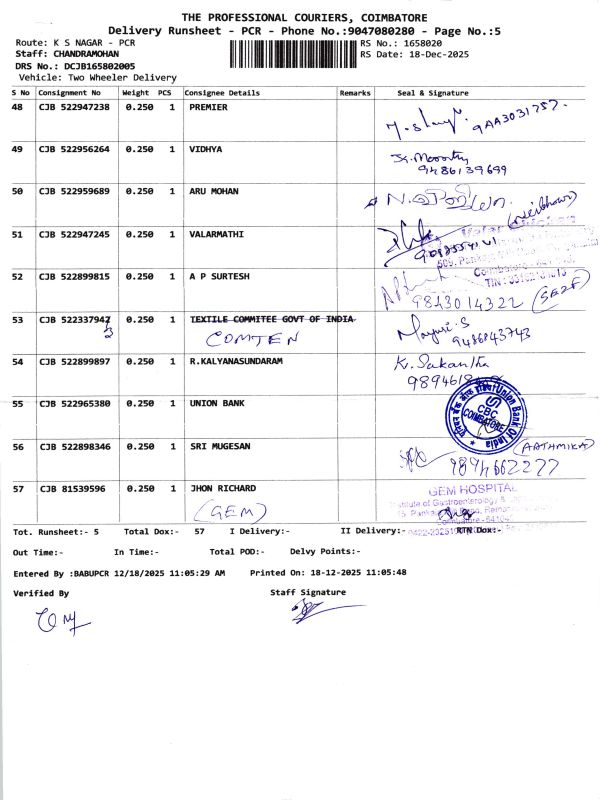 THE PROFESSIONAL COURIERS, COIMBATORE
Delivery Runsheet - PCR - Phone No.:9047080280 - Page No.:5
Route: K S NAGAR - PCR
RS No.: 1658020
Staff: CHANDRAMOHAN
RS Date: 18-Dec-2025
DRS No.: DCJB165802005
Vehicle: Two Wheeler Delivery
S No Consignment No Weight PCS Consignee Details Remarks Seal & Signature
48 CJB 522947238 0.250 1 PREMIER
9AA3031757.
49 CJB 522956264 0.250 1 VIDHYA
Moorthy
9486139699
50 CJB 522959689 0.250 1 ARU MOHAN
51 CJB 522947245 0.250 1 VALARMATHI
52 CJB 522899815 0.250 1 A P SURTESH
9843014322 (SELF)
53 CJB 522337947 0.250 1 TEXTILE COMMITEE GOVT OF INDIA
3
COMTEN
Mayuri.S
9486843743
54 CJB 522899897 0.250 1 R.KALYANASUNDARAM
K. Sukantha
55 CJB 522965380 0.250 1 UNION BANK
Union Bank of India
CBC
COIMBATORE
56 CJB 522898346 0.250 1 SRI MUGESAN
(AATHMIKA)
9894662277
57 CJB 81539596 0.250 1 JHON RICHARD
(GEM)
GEM HOSPITAL
Institute of Gastroenterology &
Coimbatore - 641045
Tot. Runsheet:- 5 Total Dox:- 57 I Delivery:- II Delivery:- RTN Dox:-
Out Time:- In Time:- Total POD:- Delvy Points:-
Entered By :BABUPCR 12/18/2025 11:05:29 AM Printed On: 18-12-2025 11:05:48
Verified By Staff Signature